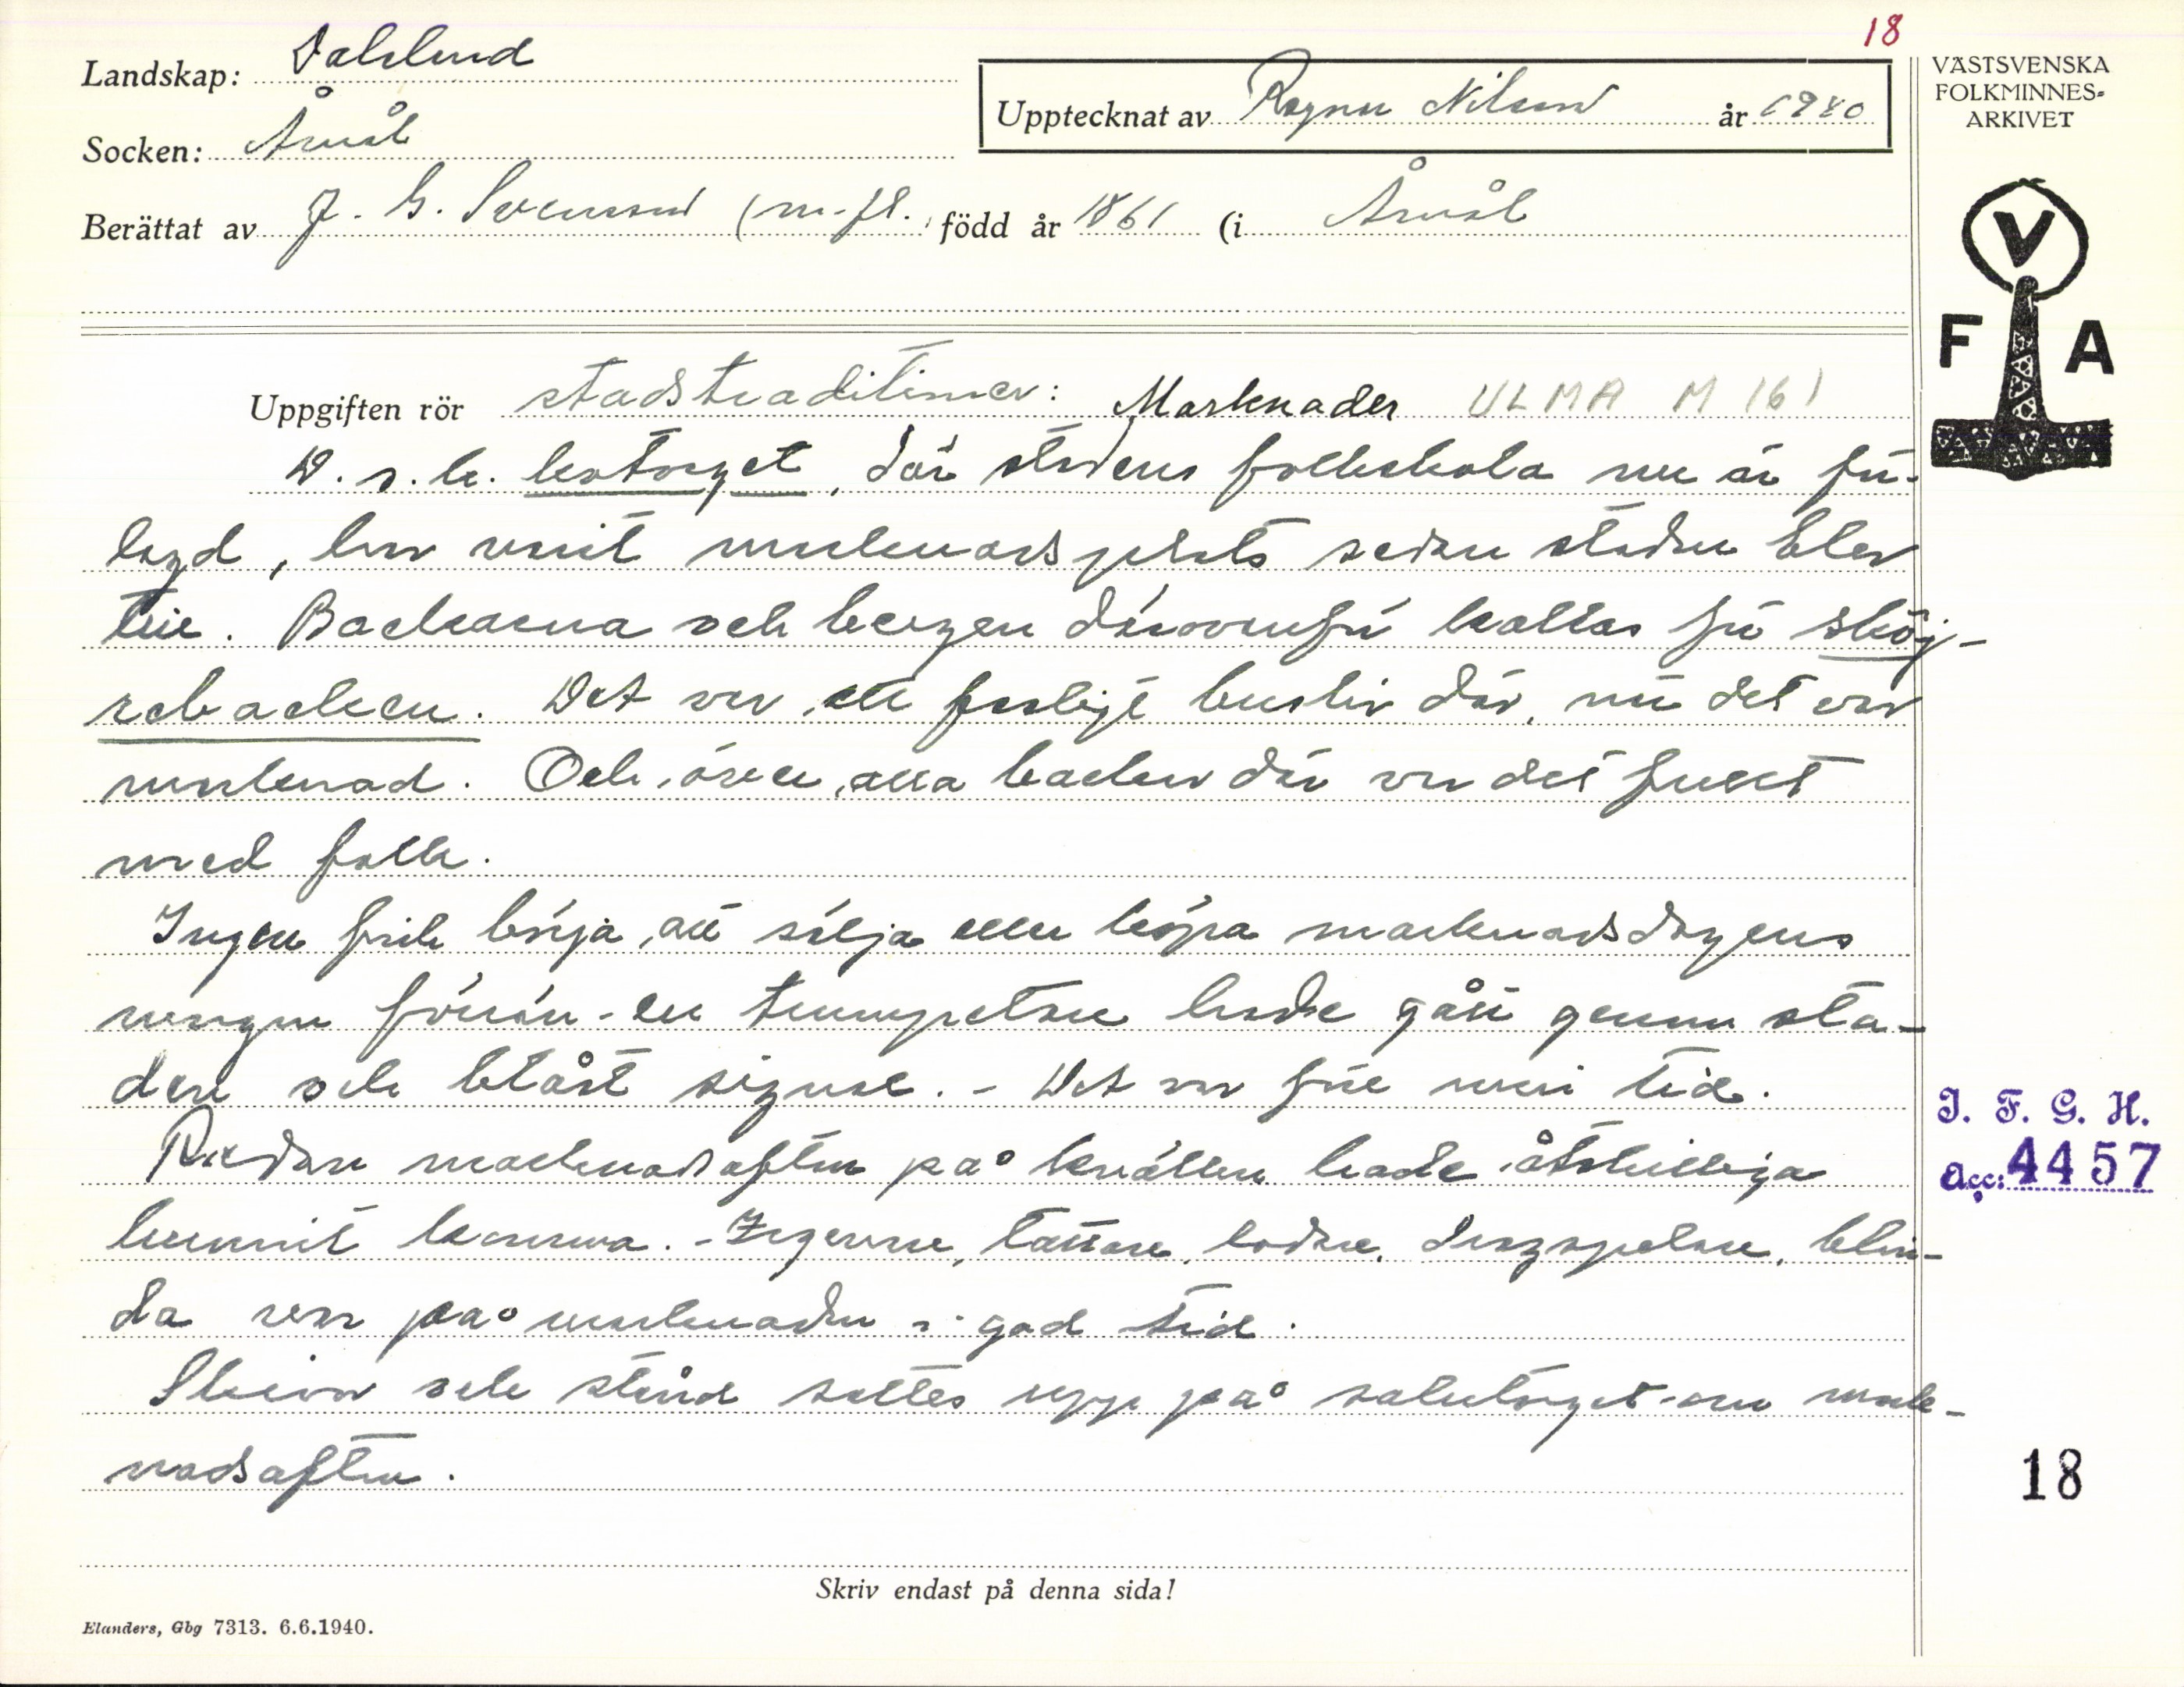 18
Landskap: Dalsland
Upptecknat av Ragnar Nilsson år 1940
VÄSTSVENSKA
FOLKMINNES-
ARKIVET
Socken: Åmål
Berättat av J. G. Svensson (m. fl. född år 1861 (i Åmål
V
F A
Uppgiften rör stadstraditioner: Marknader ULMA M 161
D. s. k. kotorget, där stadens folkskola nu är för-
lagd, har varit marknadsplats sedan staden blev
till. Backarna och bergen därovanför kallas för sköj-
rebacken. Det var ett farligt busliv där, när det var
marknad. Och över alla backar där var det fullt
med folk.
Ingen fick börja att sälja eller köpa marknadsdagens
morgon förrän en trumpetare hade gått genom sta-
den och blåst signal. - Det var före min tid.
Redan marknadsafton på kvällen hade åtskilliga
hunnit komma. - Zigenare, tattare, lodare, dragspelare, blin-
da var på marknaden i god tid.
Skivor och stånd sattes upp på salutorget om mark-
nadsafton.
I. F. G. H.
Acc: 4457
18
Skriv endast på denna sida!
Elanders, Gbg 7313. 6.6.1940.